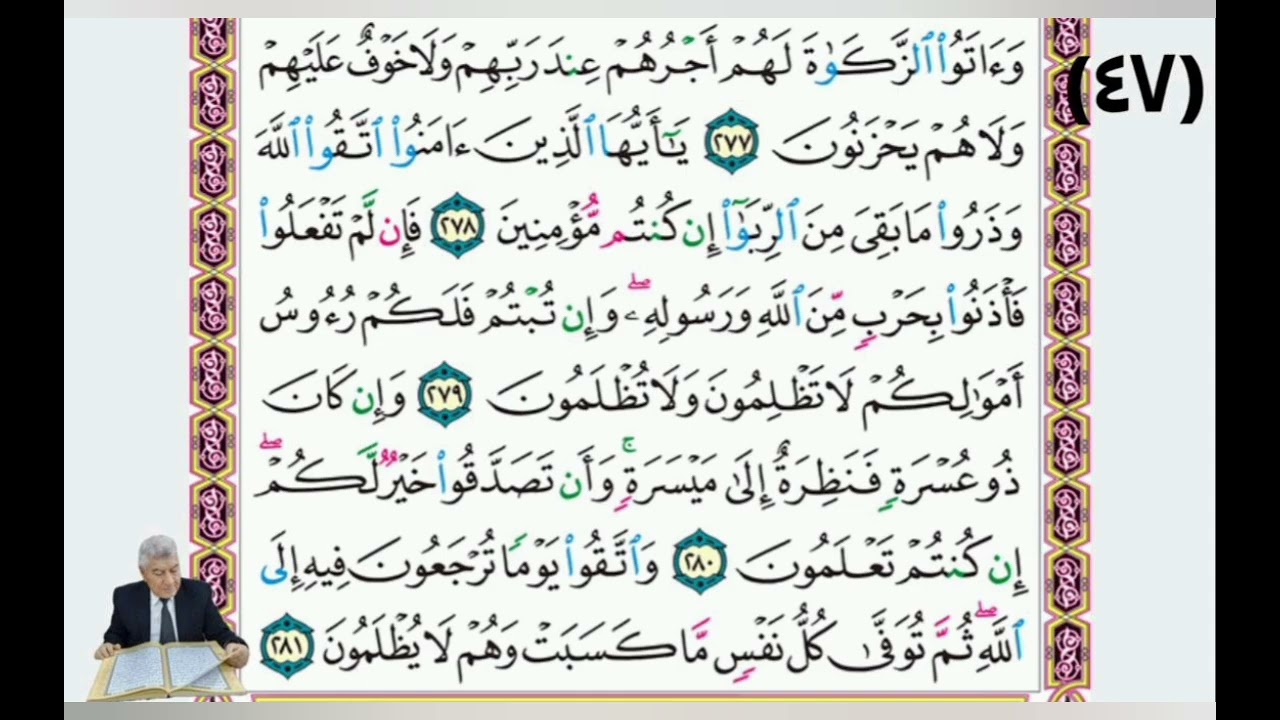 (٤٧)
وَءَاتَوُا۟ ٱلزَّكَوٰةَ لَهُمْ أَجْرُهُمْ عِندَ رَبِّهِمْ وَلَا خَوْفٌ عَلَيْهِمْ
وَلَا هُمْ يَحْزَنُونَ ٢٧٧ يَٰٓأَيُّهَا ٱلَّذِينَ ءَامَنُوا۟ ٱتَّقُوا۟ ٱللَّهَ
وَذَرُوا۟ مَا بَقِىَ مِنَ ٱلرِّبَوٰٓا۟ إِن كُنتُم مُّؤْمِنِينَ ٢٧٨ فَإِن لَّمْ تَفْعَلُوا۟
فَأْذَنُوا۟ بِحَرْبٍ مِّنَ ٱللَّهِ وَرَسُولِهِۦ ۖ وَإِن تُبْتُمْ فَلَكُمْ رُءُوسُ
أَمْوَٰلِكُمْ لَا تَظْلِمُونَ وَلَا تُظْلَمُونَ ٢٧٩ وَإِن كَانَ
ذُو عُسْرَةٍ فَنَظِرَةٌ إِلَىٰ مَيْسَرَةٍ ۚ وَأَن تَصَدَّقُوا۟ خَيْرٌ لَّكُمْ ۖ
إِن كُنتُمْ تَعْلَمُونَ ٢٨٠ وَٱتَّقُوا۟ يَوْمًا تُرْجَعُونَ فِيهِ إِلَى
ٱللَّهِ ۖ ثُمَّ تُوَفَّىٰ كُلُّ نَفْسٍ مَّا كَسَبَتْ وَهُمْ لَا يُظْلَمُونَ ٢٨١